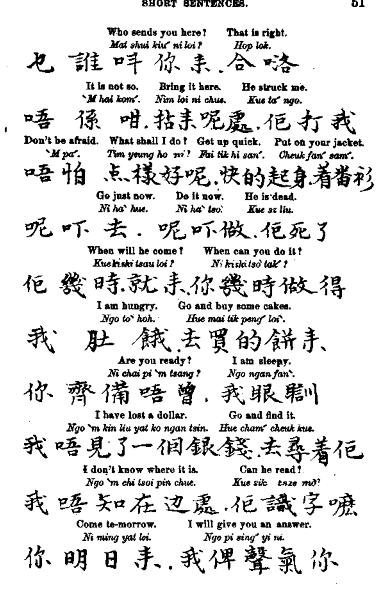 SHORT SENTENCES. 51
Who sends you here? That is right.
Mat shui kiu' ni loi? Hop lok.
乜誰呌你来,合咯
It is not so. Bring it here. He struck me.
'M hai kom'. Nim loi ni chue. Kue ta' ngo.
唔係咁,拈来呢處,佢打我
Don't be afraid. What shall I do? Get up quick. Put on your jacket.
'M pa'. Tim yeung ho ni? Fai tik hi san'. Cheuk fan' sam'.
唔怕点樣好呢,快的起身,着畨衫
Go just now. Do it now. He is dead.
Ni ha' hue. Ni ha' tso'. Kue sz liu.
呢吓去,呢吓做,佢死了
When will he come? When can you do it?
Kue kiski tsau loi? Ni kiski tso' tak'?
佢幾時就来,你幾時做得
I am hungry. Go and buy some cakes.
Ngo to' hoh. Hue mai tik peng' loi'.
我肚餓,去買的餅来
Are you ready? I am sleepy.
Ni chai pi 'm tsang? Ngo ngan fan'.
你齊備唔曾,我眼瞓
I have lost a dollar. Go and find it.
Ngo 'm kin liu yat ko ngan tsin. Hue cham' cheuk kue.
我唔見了一個銀錢,去尋着佢
I don't know where it is. Can he read?
Ngo 'm chi tsoi pin chue. Kue sik tsze mo?
我唔知在边處,佢識字嚒
Come to-morrow. I will give you an answer.
Ni ming yat loi. Ngo pi sing' yi ni.
你明日来,我俾聲氣你